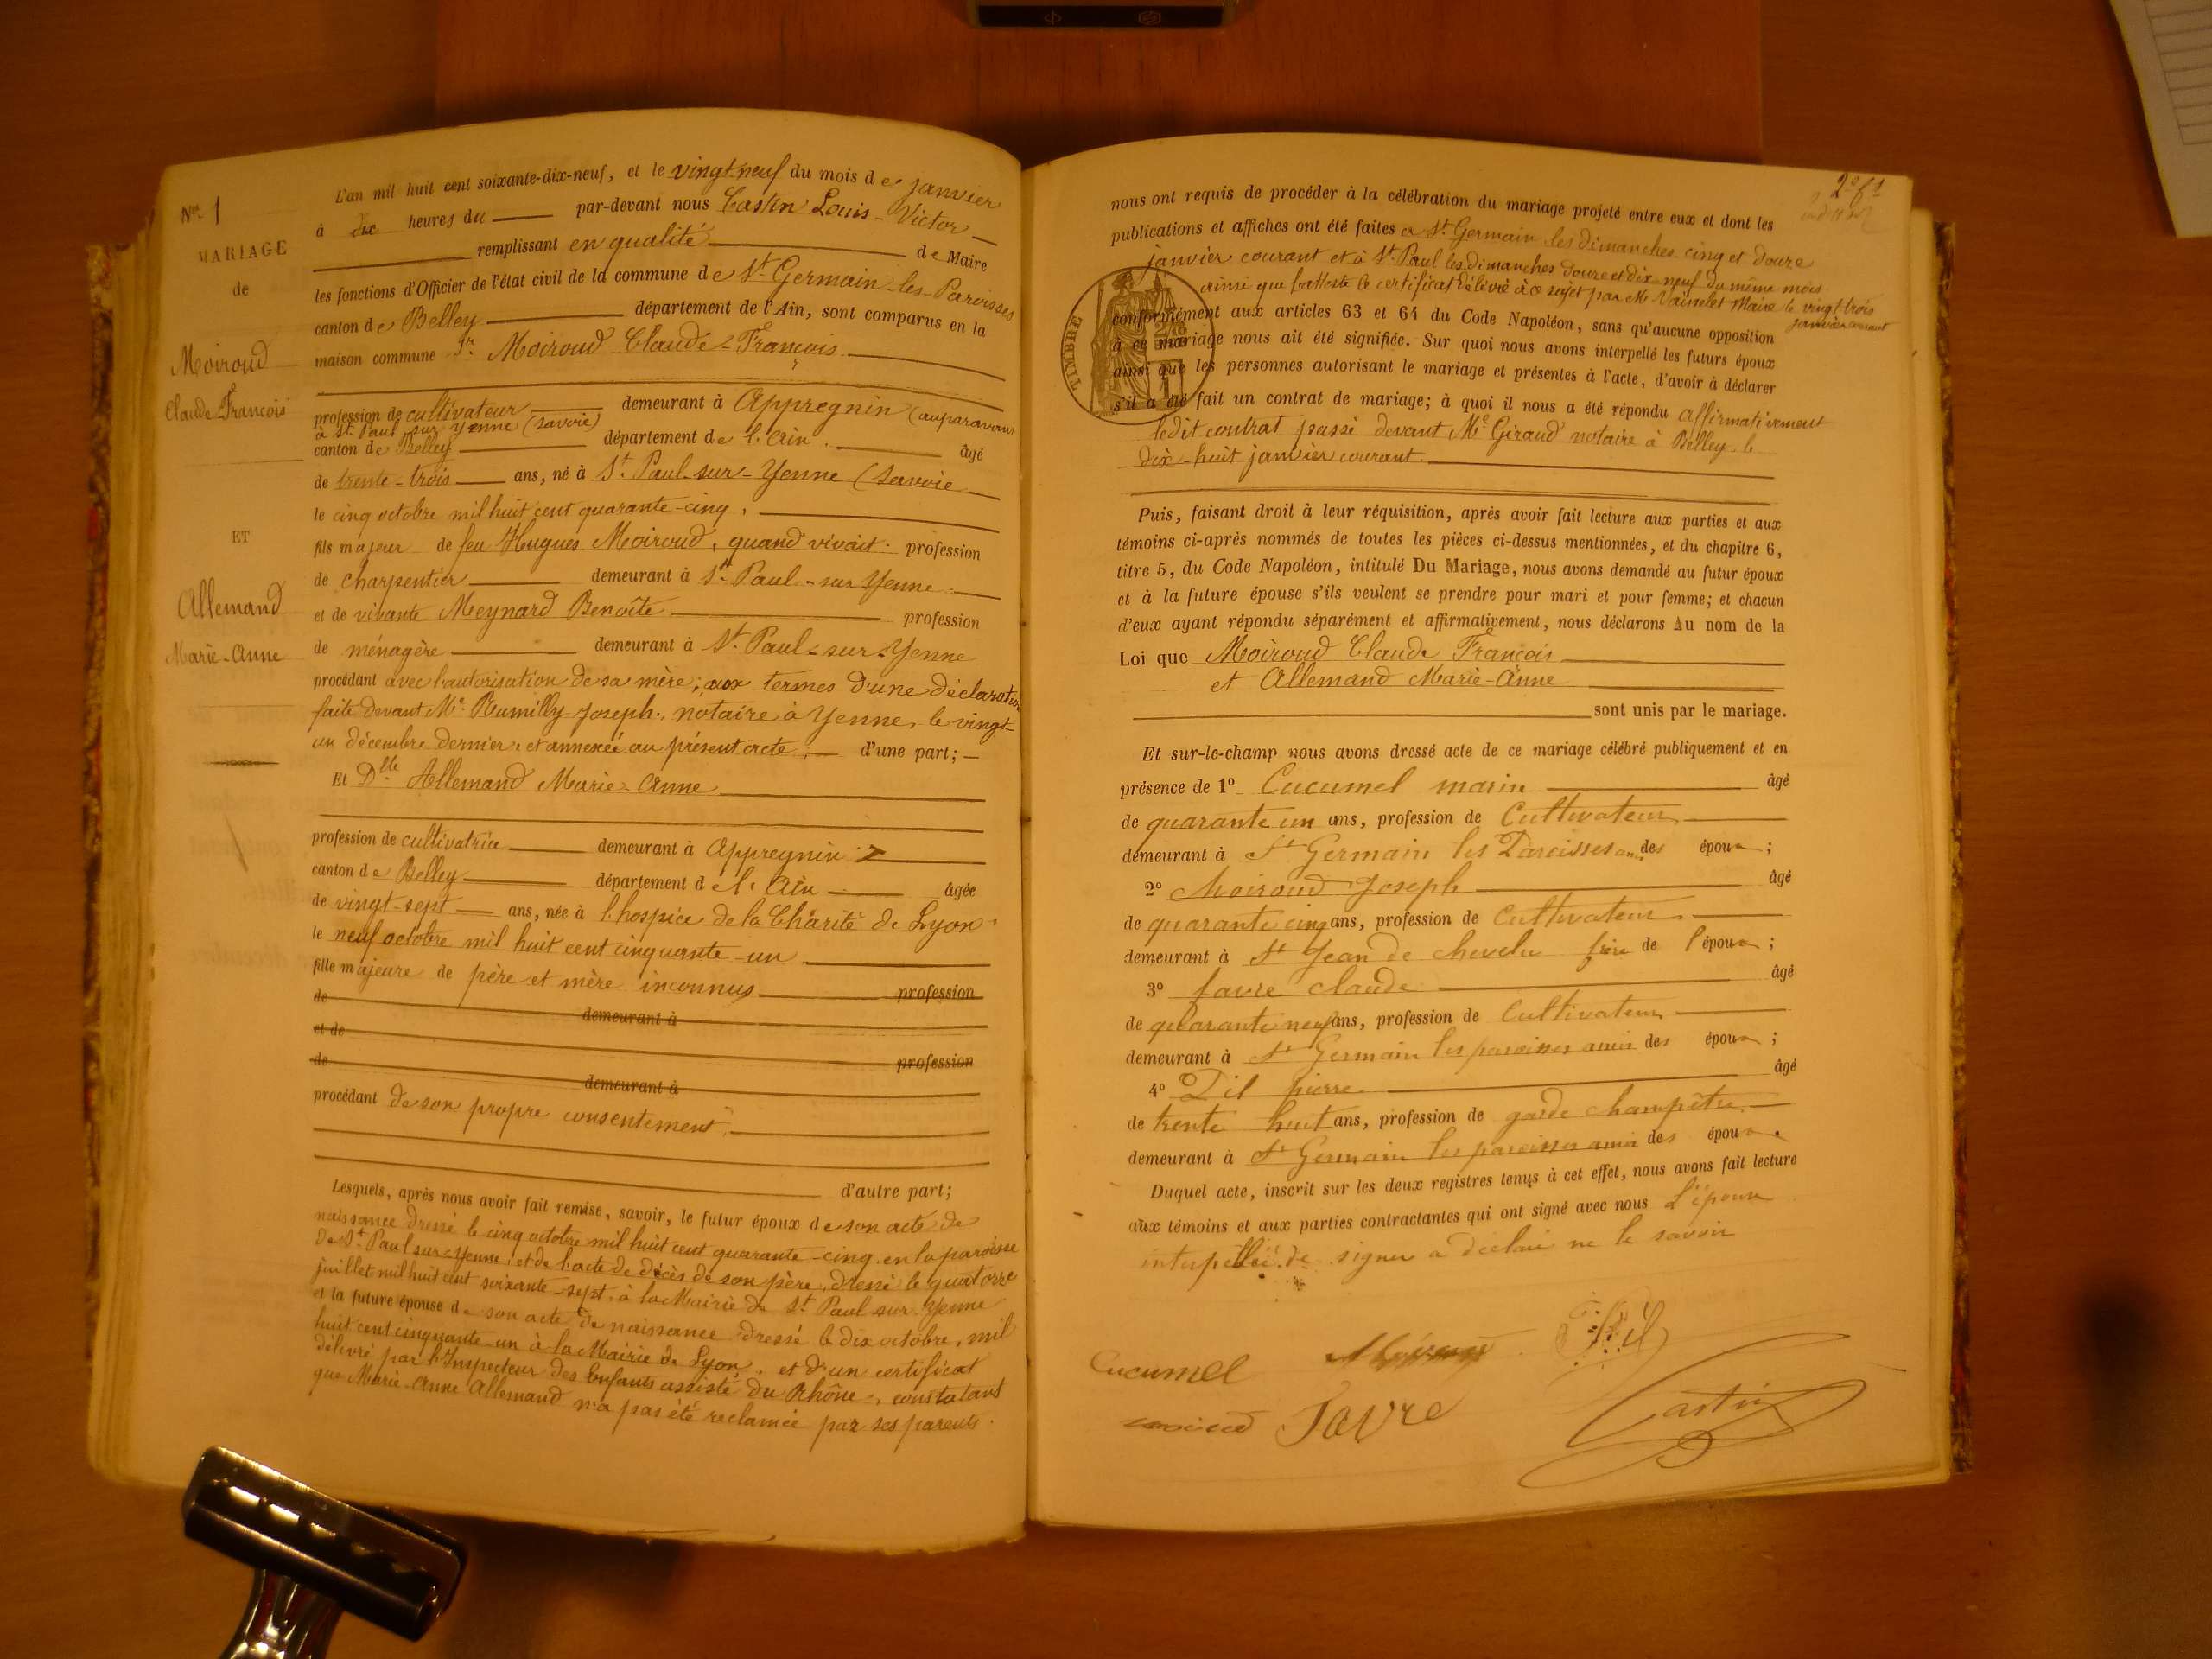 Nos 1
MARIAGE
de
Moiroud
Claude François
ET
Allemand
Marie-Anne
L'an mil huit cent soixante-dix-neuf, et le vingt-neuf du mois de janvier
à dix heures du par-devant nous Castin Louis-Victor
remplissant en qualité de Maire
les fonctions d'Officier de l'état civil de la commune de St Germain-les-Paroisses
canton de Belley département de l'Ain, sont comparus en la
maison commune Sr Moiroud Claude-François
profession de cultivateur demeurant à Appregnin (auparavant
à St Paul sur Yenne (Savoie)
canton de Belley département de l'Ain. âgé
de trente-trois ans, né à St Paul-sur-Yenne (Savoie
le cinq octobre mil huit cent quarante-cinq,
fils majeur de feu Hugues Moiroud, quand vivait profession
de charpentier demeurant à St Paul-sur Yenne
et de vivante Meynard Benoîte profession
de ménagère demeurant à St Paul-sur-Yenne
procédant avec l'autorisation de sa mère; aux termes d'une déclaration
faite devant Me Rumilly Joseph, notaire à Yenne, le vingt-
un décembre dernier, et annexée au présent acte; d'une part;
Et Dlle Allemand Marie-Anne
profession de cultivatrice demeurant à Appregnin
canton de Belley département de l'Ain âgée
de vingt-sept ans, née à l'hospice de la Charité de Lyon
le neuf octobre mil huit cent cinquante-un
fille majeure de père et mère inconnus profession
de demeurant à
et de profession
de demeurant à
procédant de son propre consentement,
d'autre part;
Lesquels, après nous avoir fait remise, savoir, le futur époux de son acte de
naissance dressé le cinq octobre mil huit cent quarante-cinq en la paroisse
de St Paul sur Yenne, et de l'acte de décès de son père, dressé le quatorze
juillet mil huit cent soixante-sept, à la Mairie de St Paul sur Yenne
et la future épouse de son acte de naissance dressé le dix octobre, mil
huit cent cinquante-un à la Mairie de Lyon, et d'un certificat
délivré par l'Inspecteur des Enfants assisté du Rhône, constatant
que Marie-Anne Allemand n'a pas été reclamée par ses parents.
2e ft
nous ont requis de procéder à la célébration du mariage projeté entre eux et dont les
publications et affiches ont été faites a St Germain les dimanches cinq et douze
janvier courant et à St Paul les dimanches douze et dix neuf du même mois
ainsi que l'atteste le certificat délivré à ce sujet par Mr Vaisselet Maire le vingt trois
janvier courant
conformément aux articles 63 et 64 du Code Napoléon, sans qu'aucune opposition
à ce mariage nous ait été signifiée. Sur quoi nous avons interpellé les futurs époux
ainsi que les personnes autorisant le mariage et présentes à l'acte, d'avoir à déclarer
s'il a été fait un contrat de mariage; à quoi il nous a été répondu affirmativement
ledit contrat passé devant Me Giraud notaire à Belley le
dix-huit janvier courant.
TIMBRE
Puis, faisant droit à leur réquisition, après avoir fait lecture aux parties et aux
témoins ci-après nommés de toutes les pièces ci-dessus mentionnées, et du chapitre 6,
titre 5, du Code Napoléon, intitulé Du Mariage, nous avons demandé au futur époux
et à la future épouse s'ils veulent se prendre pour mari et pour femme; et chacun
d'eux ayant répondu séparément et affirmativement, nous déclarons Au nom de la
Loi que Moiroud Claude François
et Allemand Marie-Anne
sont unis par le mariage.
Et sur-le-champ nous avons dressé acte de ce mariage célébré publiquement et en
présence de 1º Cucumel marin âgé
de quarante un ans, profession de Cultivateur
demeurant à St Germain les Paroisses ami des époux;
2º Moiroud Joseph âgé
de quarante cinq ans, profession de Cultivateur
demeurant à St Jean de chevelu frère de l'époux;
3º favre claude âgé
de quarante neuf ans, profession de Cultivateur
demeurant à St Germain les paroisses amis des époux;
4º Pil pierre âgé
de trente huit ans, profession de garde champêtre
demeurant à St Germain les paroisses amis des époux.
Duquel acte, inscrit sur les deux registres tenus à cet effet, nous avons fait lecture
aux témoins et aux parties contractantes qui ont signé avec nous L'épouse
interpellée de signer a déclaré ne le savoir
Cucumel Moiroud Pil
moiroud Favre Castin